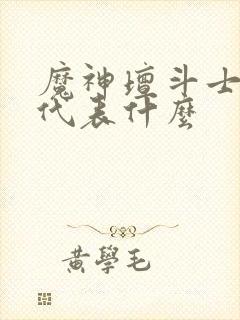 魔神壇斗士
代表什麼
黃學毛